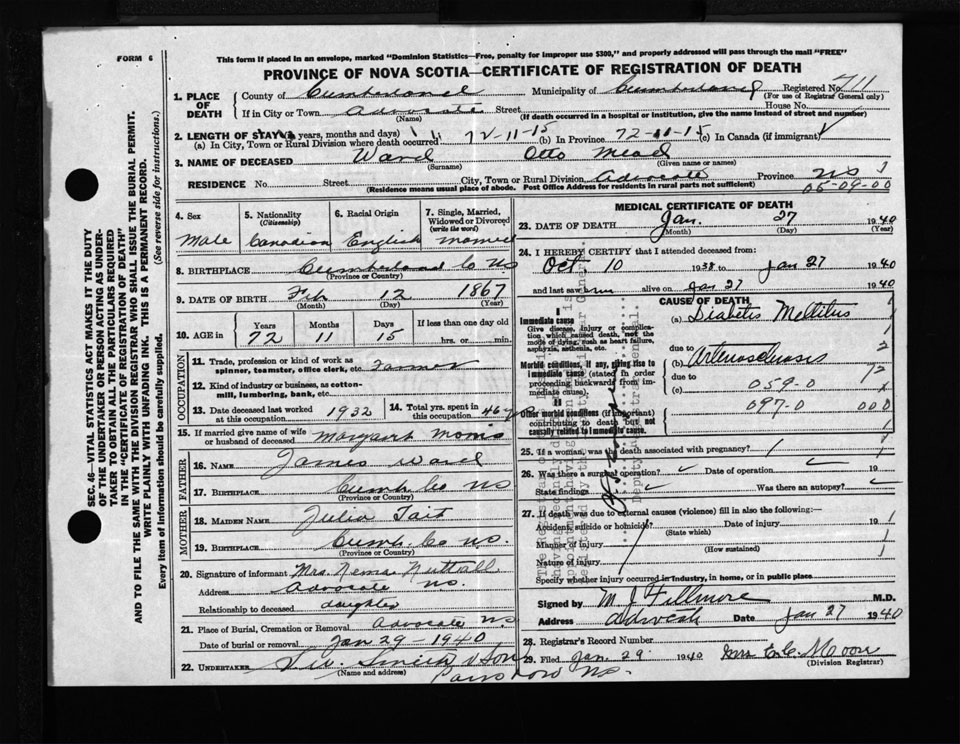 FORM 6
This form if placed in an envelope, marked "Dominion Statistics—Free, penalty for improper use $300," and properly addressed will pass through the mail "FREE"
PROVINCE OF NOVA SCOTIA—CERTIFICATE OF REGISTRATION OF DEATH
SEC. 46—VITAL STATISTICS ACT MAKES IT THE DUTY
OF THE UNDERTAKER OR PERSON ACTING AS UNDER-
TAKER TO OBTAIN ALL THE PARTICULARS REQUIRED
IN THE "CERTIFICATE OF REGISTRATION OF DEATH"
AND TO FILE THE SAME WITH THE DIVISION REGISTRAR WHO SHALL ISSUE THE BURIAL PERMIT.
WRITE PLAINLY WITH UNFADING INK. THIS IS A PERMANENT RECORD.
Every item of information should be carefully supplied. (See reverse side for instructions.)
1. PLACE OF DEATH County of Cumberland Municipality of Cumberland Registered No. 711
(For use of Registrar General only)
If in City or Town Advocate Street House No.
(Name) (If death occurred in a hospital or institution, give the name instead of street and number)
2. LENGTH OF STAY (in years, months and days)
(a) In City, Town or Rural Division where death occurred 72-11-15 (b) In Province 72-11-15 (c) In Canada (if immigrant)
3. NAME OF DECEASED Ward Otto Mead
(Surname) (Given name or names)
RESIDENCE No. Street City, Town or Rural Division Advocate Province NS
(Residence means usual place of abode. Post Office Address for residents in rural parts not sufficient) 05-09-00
4. Sex 5. Nationality (Citizenship) 6. Racial Origin 7. Single, Married, Widowed or Divorced (write the word)
Male Canadian English married
8. BIRTHPLACE Cumberland Co NS
(Province or Country)
9. DATE OF BIRTH Feb 12 1867
(Month) (Day) (Year)
10. AGE in Years Months Days If less than one day old
72 11 15 hrs. or min.
OCCUPATION
11. Trade, profession or kind of work as spinner, teamster, office clerk, etc. Farmer
12. Kind of industry or business, as cotton-mill, lumbering, bank, etc.
13. Date deceased last worked at this occupation. 1932 14. Total yrs. spent in this occupation. 46
15. If married give name of wife or husband of deceased Margaret Morris
FATHER
16. NAME James Ward
17. BIRTHPLACE Cumb. Co NS
(Province or Country)
MOTHER
18. MAIDEN NAME Julia Tait
19. BIRTHPLACE Cumb. Co NS.
(Province or Country)
20. Signature of informant Mrs. Nema Nuttall
Address Advocate NS.
Relationship to deceased daughter
21. Place of Burial, Cremation or Removal Advocate NS
Date of burial or removal Jan 29 - 1940
22. UNDERTAKER Smith & Son
(Name and address)
Parrsboro NS.
MEDICAL CERTIFICATE OF DEATH
23. DATE OF DEATH Jan. 27 1940
(Month) (Day) (Year)
24. I HEREBY CERTIFY that I attended deceased from:
Oct 10 1938 to Jan 27 1940
and last saw him alive on Jan 27 1940
CAUSE OF DEATH
Immediate cause
Give disease, injury or complication which caused death, not the mode of dying, such as heart failure, asphyxia, asthenia, etc.
(a) Diabetis Mellitus
due to
Morbid conditions, if any, giving rise to immediate cause (stated in order proceeding backwards from immediate cause).
(b) Arteriosclerosis
due to
(c) 059-0
II
Other morbid conditions (if important) contributing to death but not causally related to immediate cause.
097-0 000
25. If a woman, was the death associated with pregnancy?
26. Was there a surgical operation? Date of operation 19
State findings Was there an autopsy?
27. If death was due to external causes (violence) fill in also the following:—
Accident, suicide or homicide? Date of injury 19
(State which)
Manner of injury
(How sustained)
Nature of injury
Specify whether injury occurred in industry, in home, or in public place
Signed by M J Fillmore M.D.
Address Advocate Date Jan 27 1940
28. Registrar's Record Number
29. Filed Jan. 29. 1940 Moore
(Division Registrar)